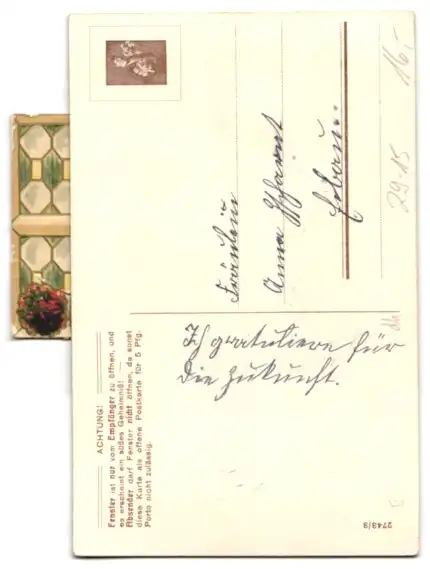 Fräulein
Anna
Ich gratuliere für
die Zukunft.
ACHTUNG!
Fenster ist nur vom Empfänger zu öffnen, und
es erscheint ein süßes Geheimniß!
Absender darf Fenster nicht öffnen, da sonst
diese Karte als offene Postkarte für 5 Pfg.
Porto nicht zulässig.
2743/8
29-15 16,-